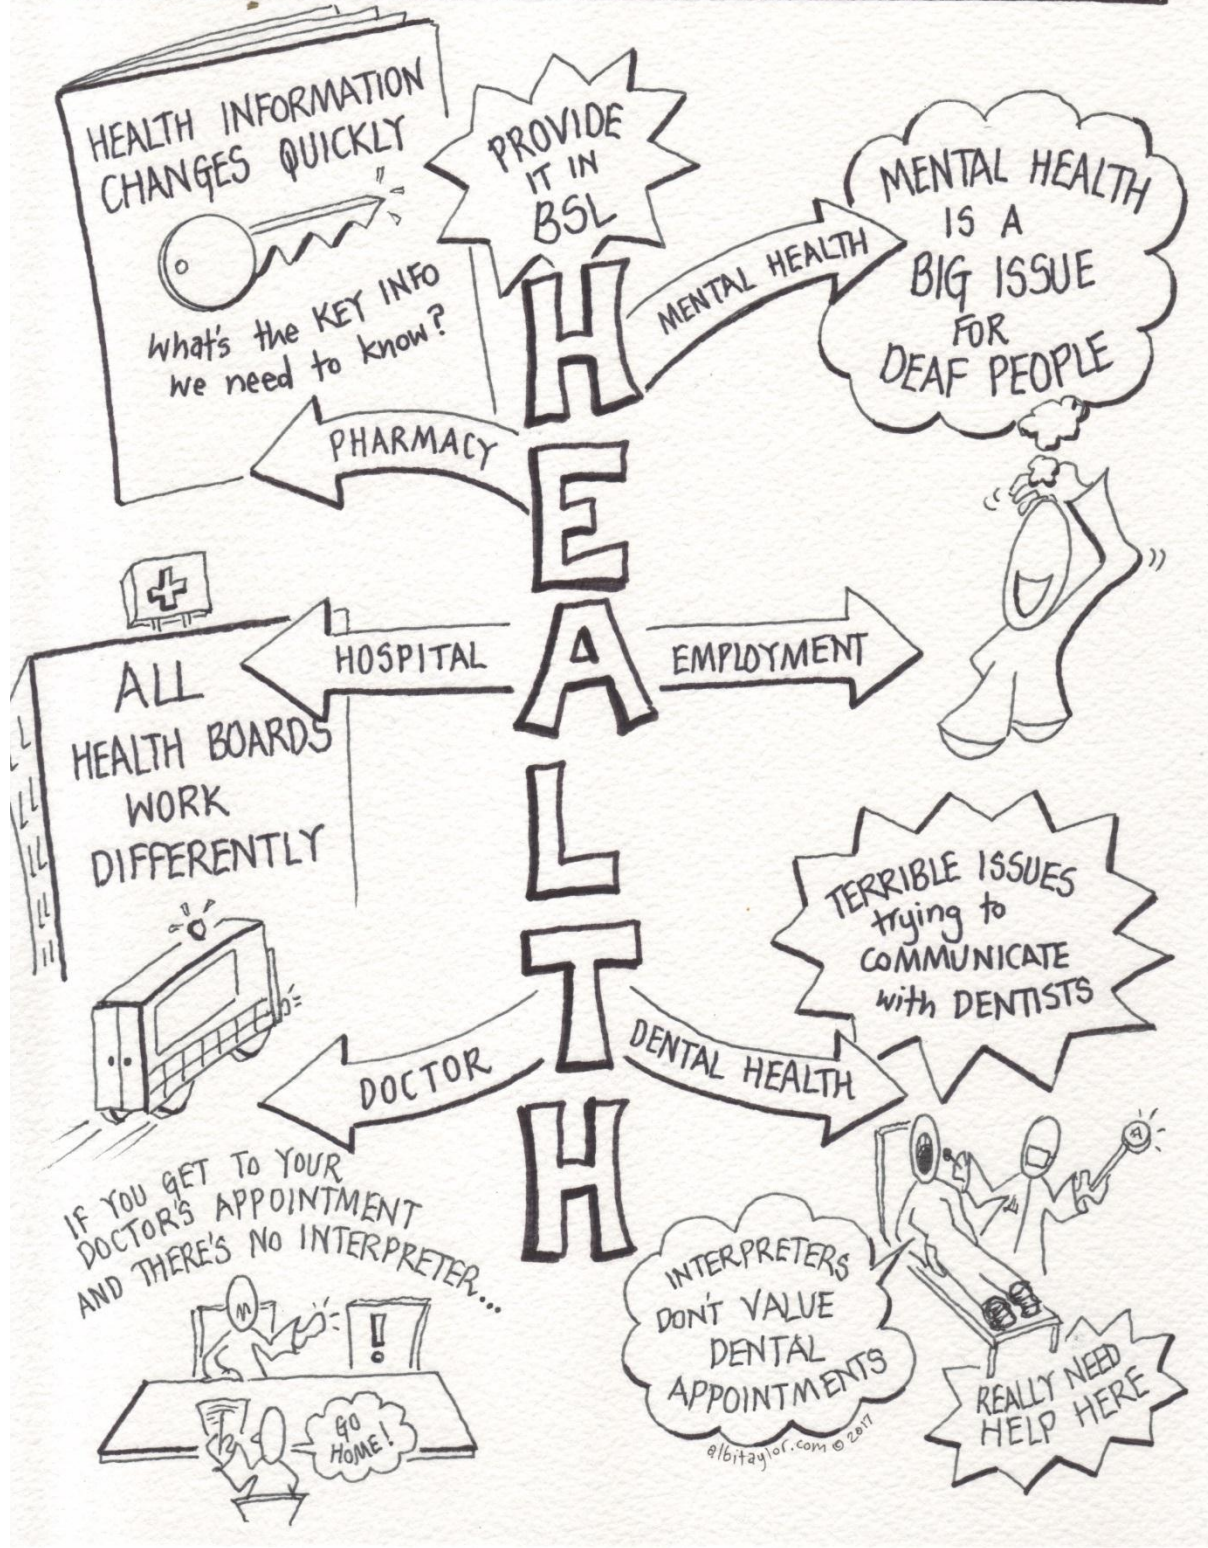 HEALTH INFORMATION
CHANGES QUICKLY
What's the KEY INFO
we need to know?
PROVIDE
IT IN
BSL
HEALTH
MENTAL HEALTH
MENTAL HEALTH
IS A
BIG ISSUE
FOR
DEAF PEOPLE
PHARMACY
HOSPITAL
EMPLOYMENT
ALL
HEALTH BOARDS
WORK
DIFFERENTLY
TERRIBLE ISSUES
trying to
COMMUNICATE
with DENTISTS
DOCTOR
DENTAL HEALTH
IF YOU GET TO YOUR
DOCTOR'S APPOINTMENT
AND THERE'S NO INTERPRETER...
!
GO
HOME!
INTERPRETERS
DON'T VALUE
DENTAL
APPOINTMENTS
REALLY NEED
HELP HERE
albitaylor.com © 2017